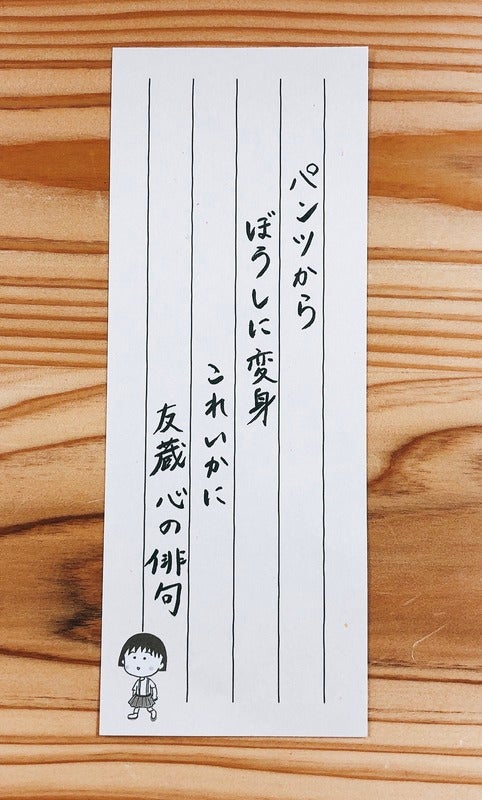 パンツから
ぼうしに変身
これいかに
友蔵 心の俳句